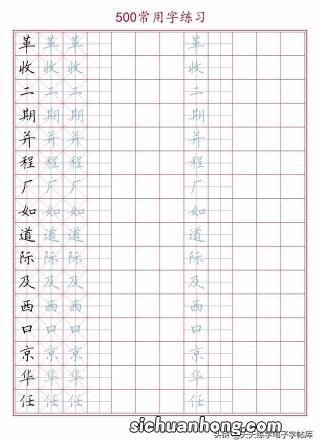 500常用字练习
革 革 革 革
收 收 收 收
二 二 二 二
期 期 期 期
并 并 并 并
程 程 程 程
厂 厂 厂 厂
如 如 如 如
道 道 道 道
际 际 际 际
及 及 及 及
西 西 西 西
口 口 口 口
京 京 京 京
华 华 华 华
任 任 任 任
sichuanhong.com